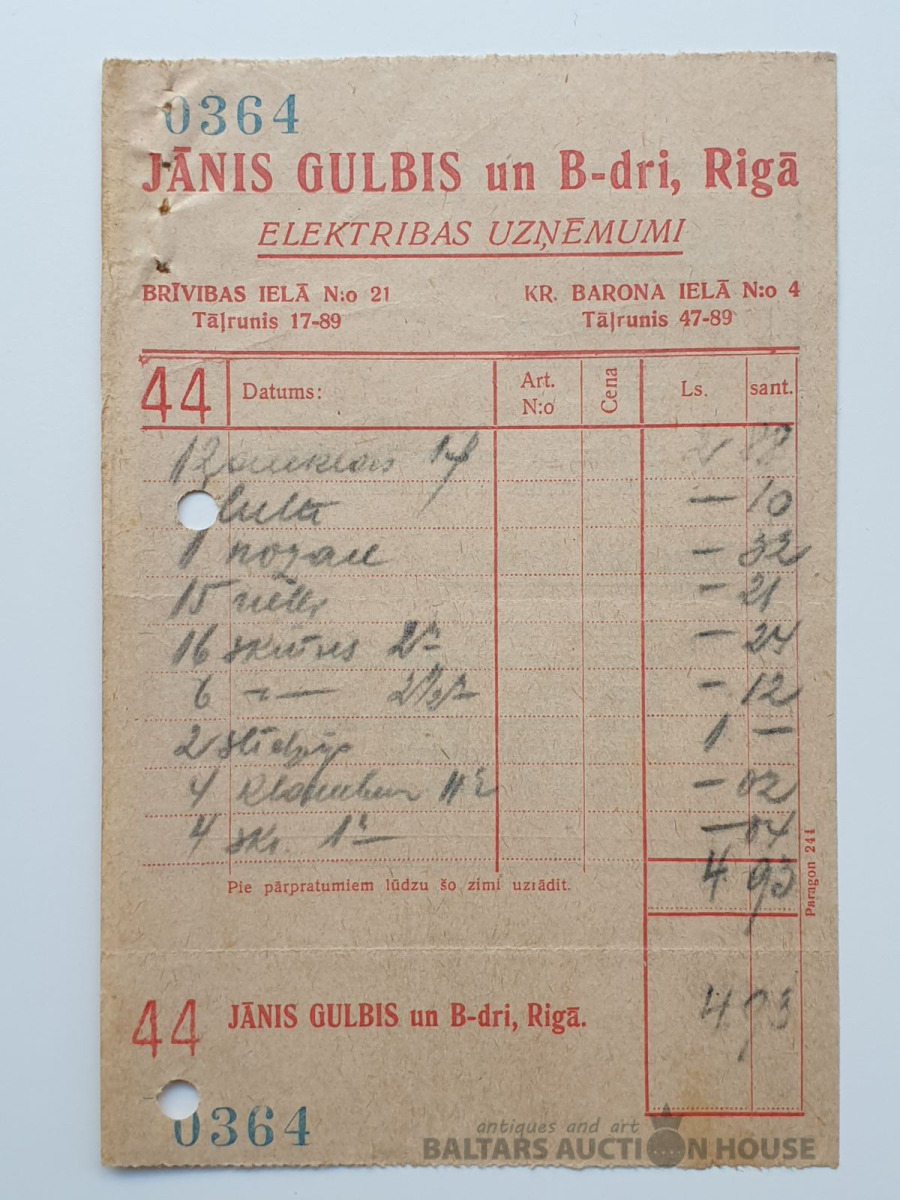 0364
JĀNIS GULBIS un B-dri, Rigā
ELEKTRIBAS UZŅĒMUMI
BRĪVIBAS IELĀ N:o 21 KR. BARONA IELĀ N:o 4
Tāļrunis 17-89 Tāļrunis 47-89
44 Datums: Art. N:o Cena Ls. sant.
12
— 10
1 — 32
15 — 21
16 skrūves 2" — 24
6 — 2½" — 12
2 1 —
4 — 02
4 skr. 1" — 04
4 93
Pie pārpratumiem lūdzu šo zimi uzrādit.
Paragon 244
4.93
44 JĀNIS GULBIS un B-dri, Rigā.
0364
antiques and art
BALTARS AUCTION HOUSE